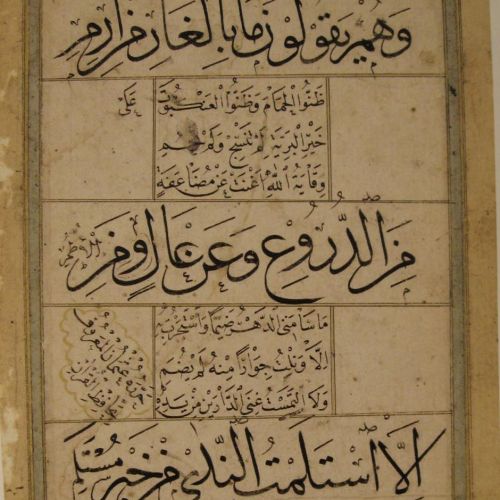 وَهُمْ يَقُولُونَ مَا بِالْغَارِ مِنْ اَرِمِ
ظَنُّوا الْحَمَامَ وَظَنُّوا الْعَنْكَبُوتَ عَلَى
خَيْرِ الْبَرِيَّةِ لَمْ تَنْسُجْ وَلَمْ تَحُمِ
وِقَايَةُ اللّٰهِ اَغْنَتْ عَنْ مُضَاعَفَةٍ
مِنَ الدُّرُوعِ وَعَنْ عَالٍ وَمِنْ الْاُطُمِ
مَا سَامَنِي الدَّهْرُ ضَيْمًا وَاسْتَجَرْتُ بِهِ
اِلَّا وَنِلْتُ جِوَارًا مِنْهُ لَمْ يُضَمِ
وَلَا الْتَمَسْتُ غِنَى الدَّارَيْنِ مِنْ يَدِهِ
حرره عثمان المعروف
بحافظ القرآن
اِلَّا اسْتَلَمْتُ النَّدَى مِنْ خَيْرِ مُسْتَلَمِ